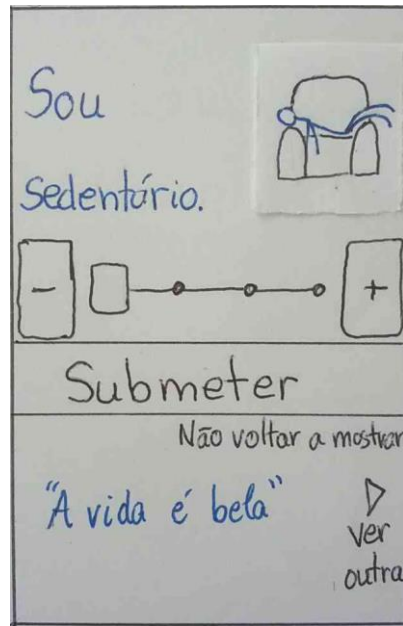 Sou
Sedentário.
-
+
Submeter
Não voltar a mostrar
"A vida é bela"
ver
outra